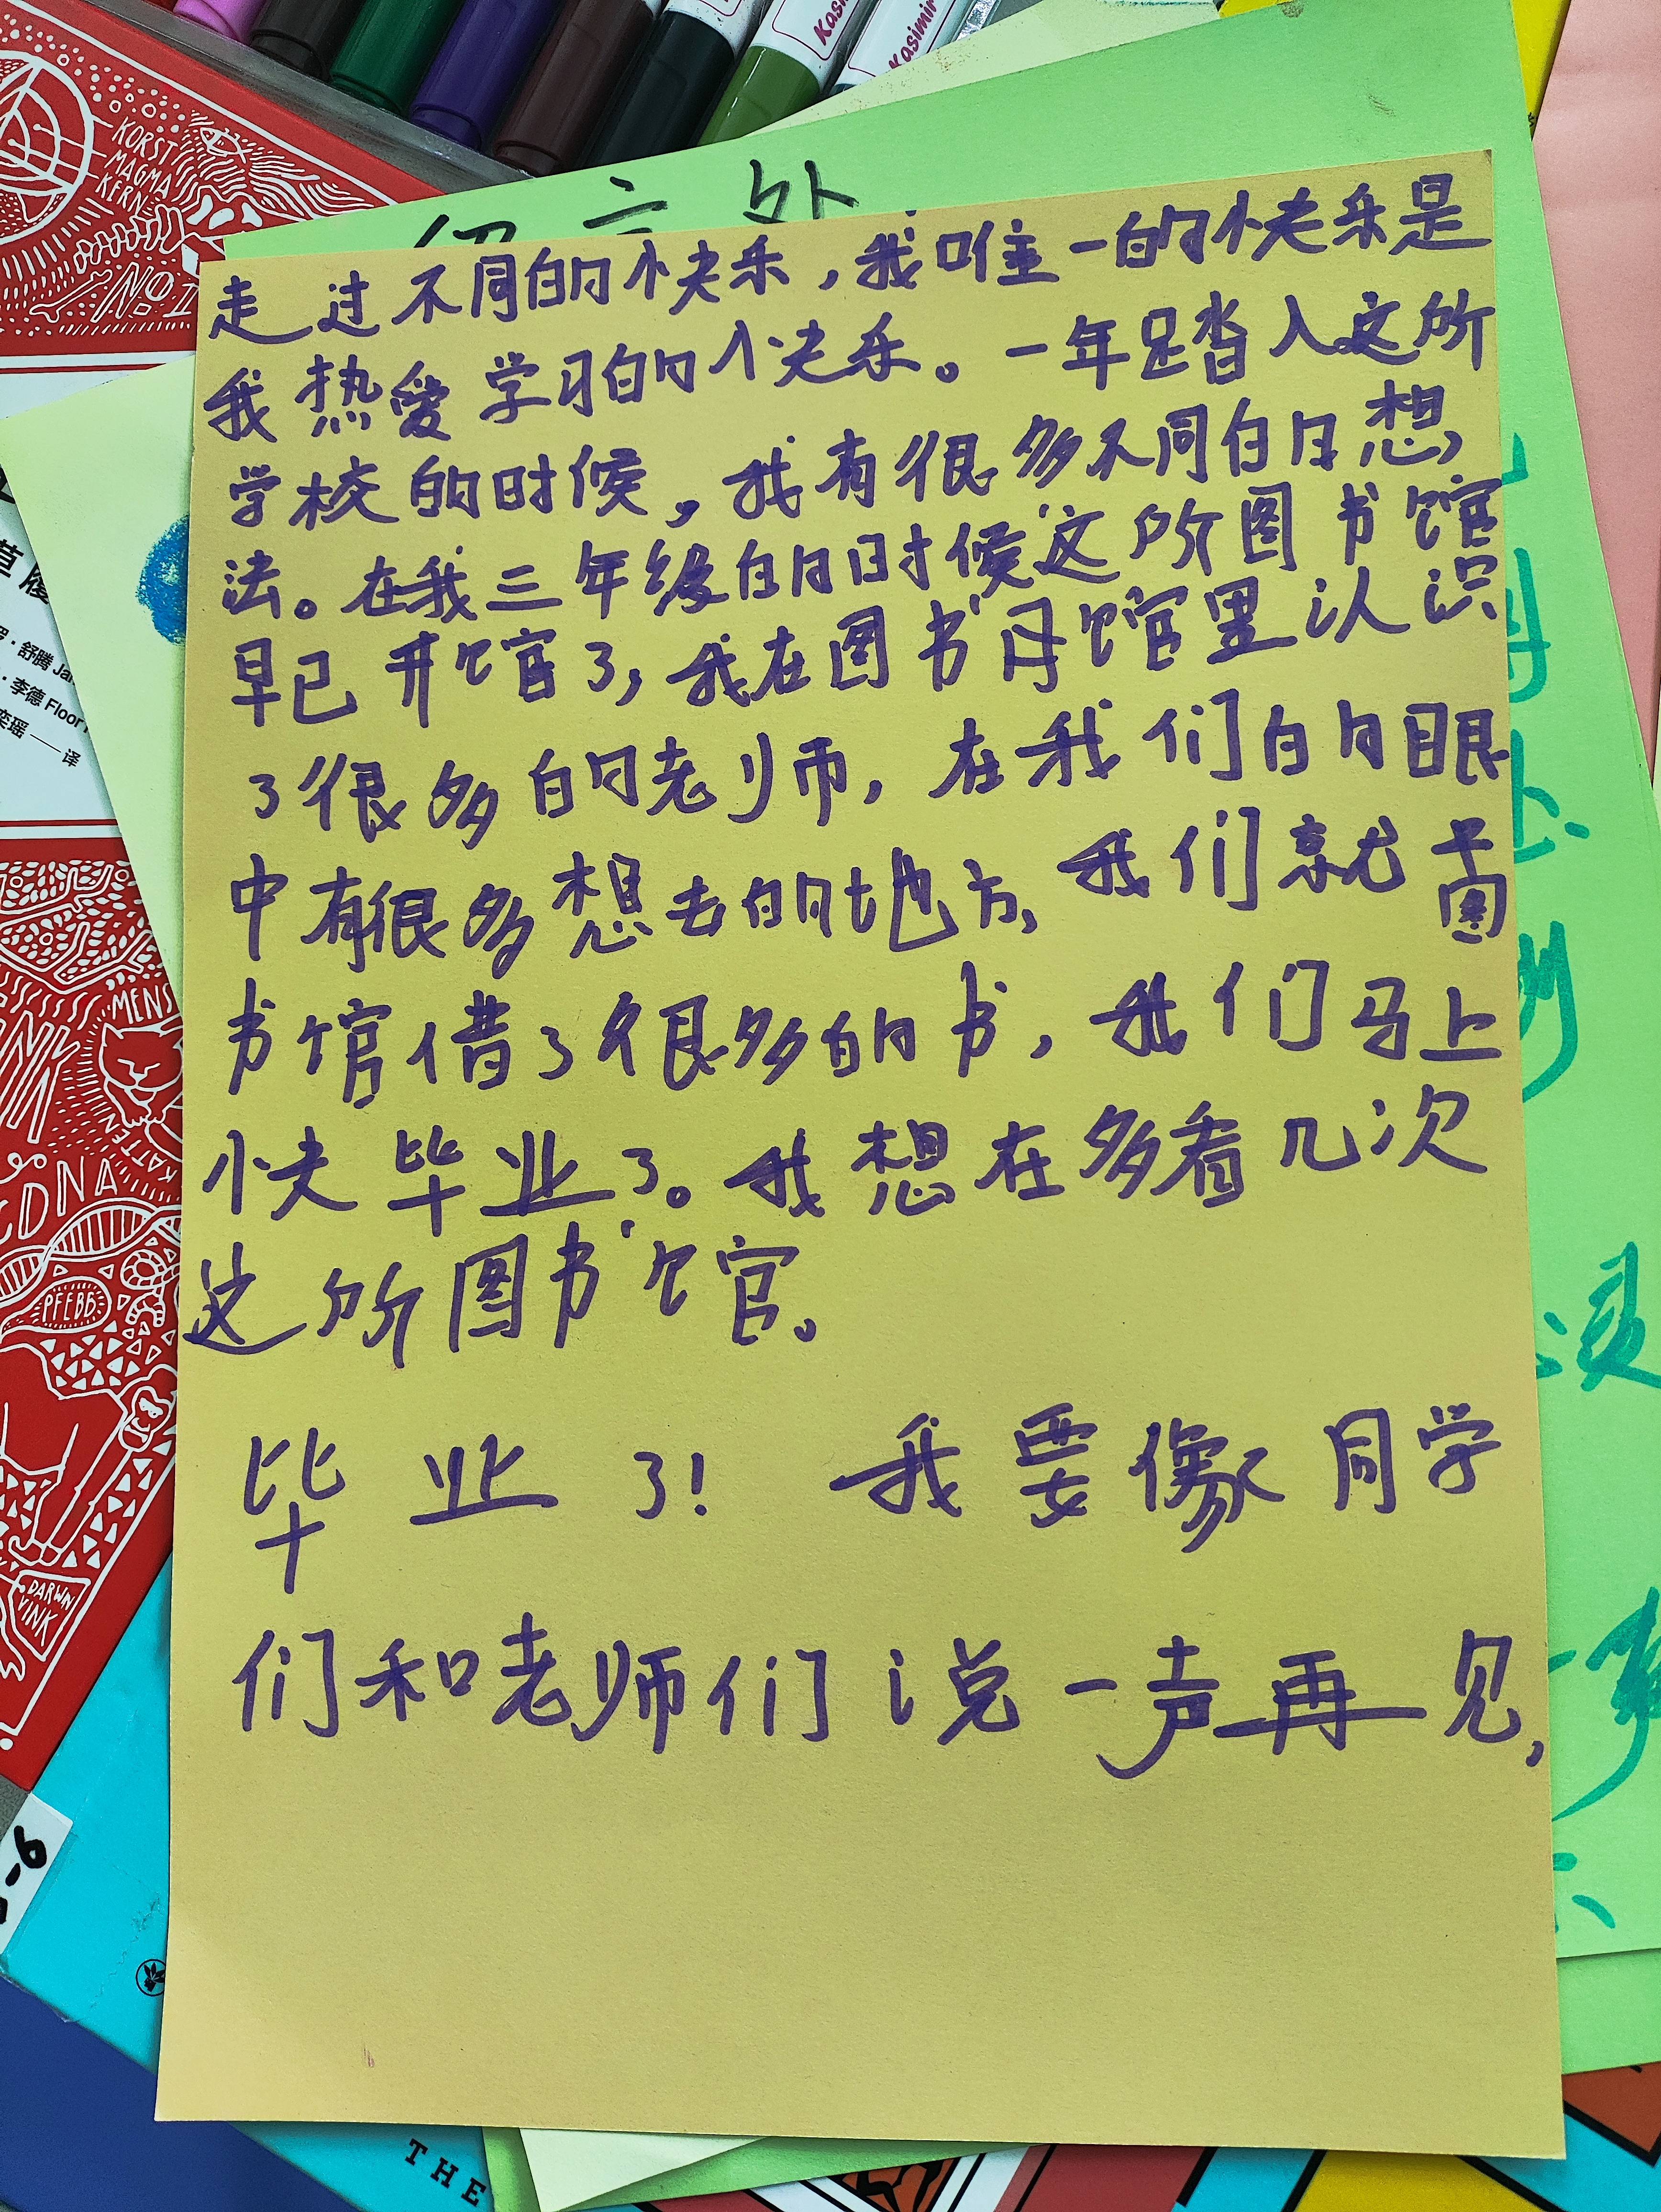 Kasimir
Kasimir
KORST
MAGMA
KERN
NO
走过不同的快乐，我唯一的快乐是
我热爱学习的快乐。一年足踏入这所
学校的时候，我有很多不同的想
法。在我三年级的时候这所图书馆
早已开馆了，我在图书月馆里认识
了很多的老师，在我们的眼
中有很多想去的地方，我们就
书馆借了很多的书，我们马上
快毕业了。我想在多看几次
这所图书馆。
毕业了！我要像同学
们和老师们说一声再见，
舒腾 Jan
李德 Floor
奕瑶——译
MENS
KATTEN
DNA
PFFBB
DARWIN
VINK
THE